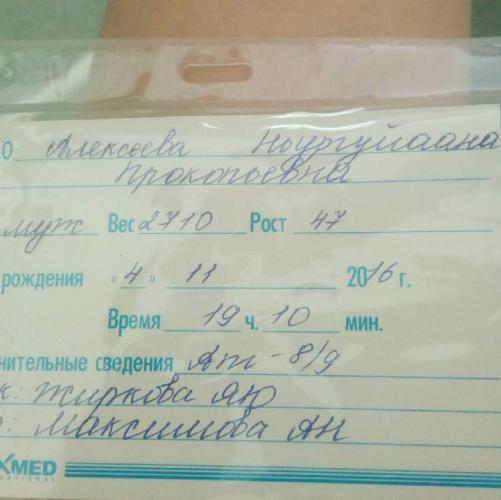 О Алексеева Ноургуйаана
Прокопьевна
муж Вес 2710 Рост 47
рождения «4» 11 2016 г.
Время 19 ч. 10 мин.
нительные сведения Апг - 8/9
к: Жиркова ЯЮ
: Максимова АН
XMED
NATIONAL